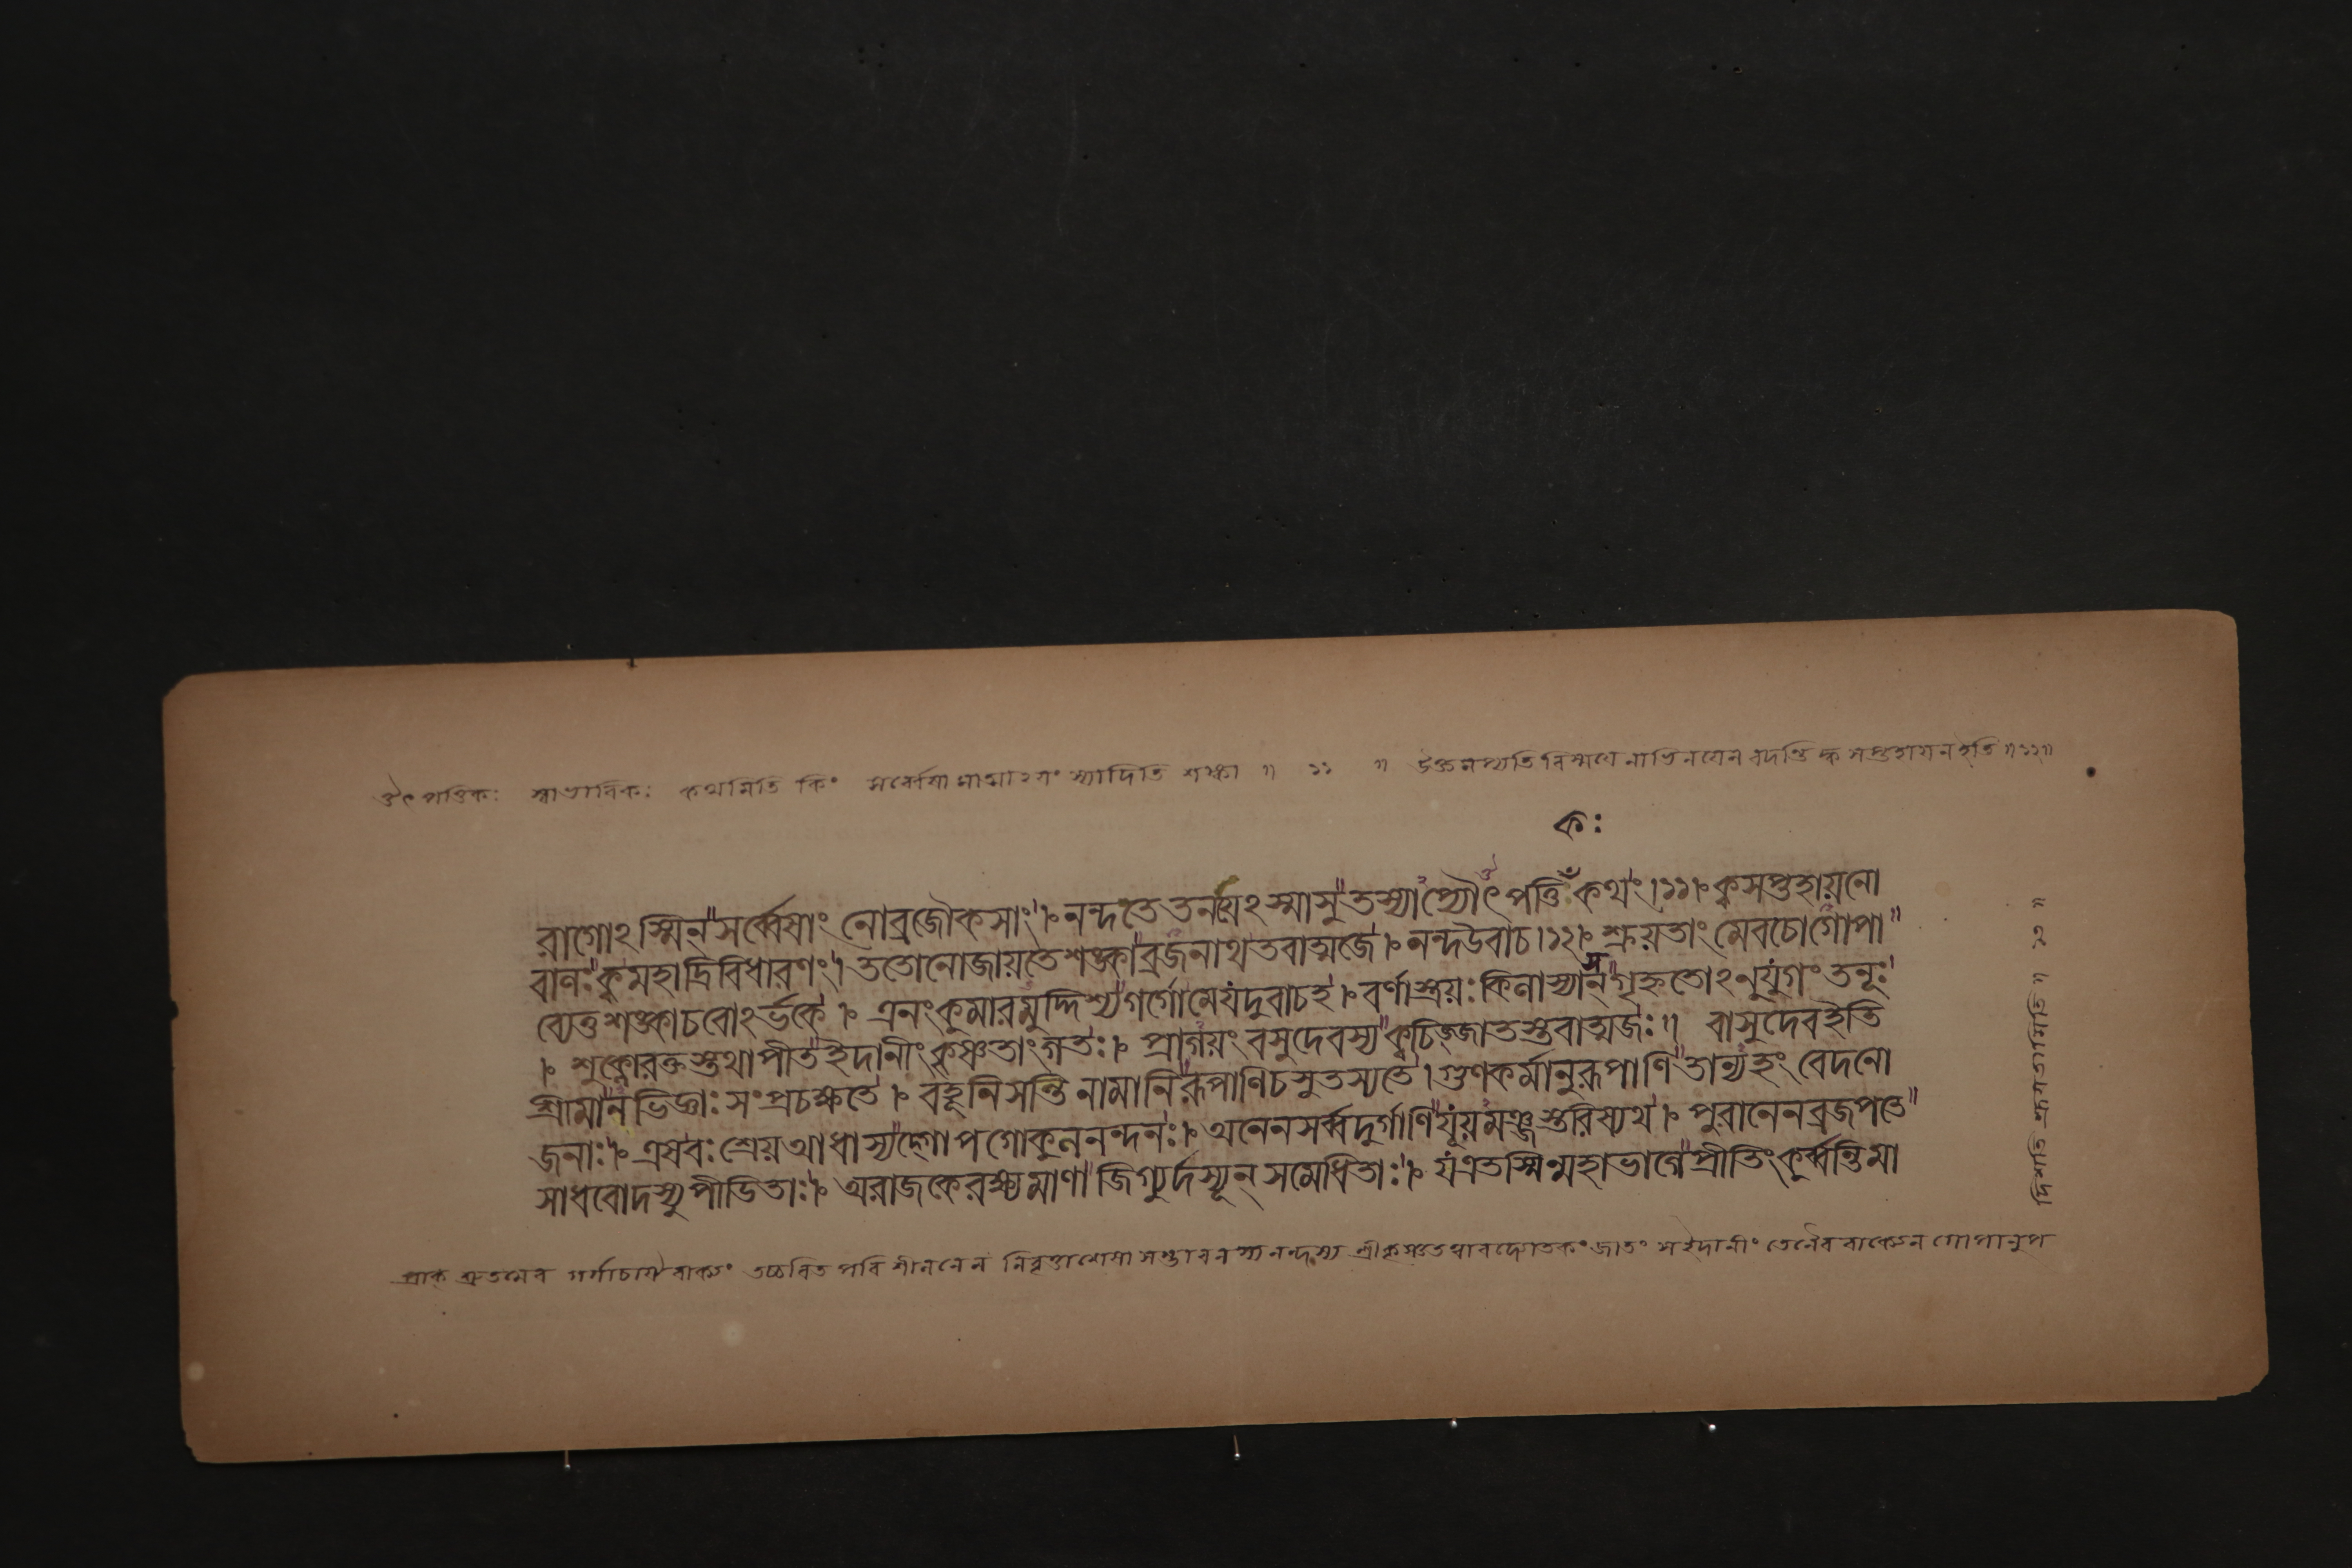 ঔৎপত্তিকঃ স্বাভাবিকঃ কথমিতি কিং সর্ব্বেষামাত্মায়ং স্যাদিতি শঙ্কা ॥ ১১ ॥ উক্তমপ্যতিবিস্ময়েনাভিনয়েন বদন্তি ক্ব সপ্তহায়ন ইতি ॥১২॥
কঃ
রাগোঽস্মিন্ সর্ব্বেষাং নো ব্রজৌকসাং । নন্দ তে তনয়েঽস্মাসু তস্যাপ্যৌৎপত্তি কথং ।১১। ক্ব সপ্তহায়নো
বালঃ ক্ব মহাদ্রিবিধারণং । ততো নো জায়তে শঙ্কা ব্রজনাথ তবাত্মজে । নন্দ উবাচ ।১২। শ্রূয়তাং মে বচো গোপা
ব্যেতু শঙ্কা চ বোঽর্ভকে । এনং কুমারমুদ্দিশ্য গর্গো মে যদুবাচ হ । বর্ণাস্ত্রয়ঃ কিলাস্যাসন্ গৃহ্নতোঽনুযুগং তনূঃ
। শুক্লো রক্তস্তথা পীত ইদানীং কৃষ্ণতাং গতঃ । প্রাগয়ং বসুদেবস্য ক্বচিজ্জাতস্তবাত্মজঃ ॥ বাসুদেব ইতি
শ্রীমানভিজ্ঞাঃ সংপ্রচক্ষতে । বহূনি সন্তি নামানি রূপাণি চ সুতস্য তে । গুণকর্মানুরূপাণি তান্যহং বেদ নো
জনাঃ । এষ বঃ শ্রেয় আধাস্যদ্গোপগোকুলনন্দনঃ । অনেন সর্ব্বদুর্গাণি যূয়মঞ্জস্তরিষ্যথ । পুরানেন ব্রজপতে
সাধবো দস্যুপীডিতাঃ । অরাজকে রক্ষ্যমাণা জিগ্যুর্দস্যূন্ সমেধিতাঃ । য এতস্মিন্মহাভাগে প্রীতিং কুর্ব্বন্তি মা
প্রাক্ শ্রুতমেব গর্গাচার্য্যবাক্যং তচ্চরিত পরিশীলনেন নিবৃত্তাশেষাসম্ভাবনস্য নন্দস্য শ্রীকৃষ্ণতত্ত্বাববোধকং জাতং স ইদানীং তেনৈব বাক্যেন গোপানুপ
দিশতি শ্রূয়তামিতি ॥ ১৩ ॥